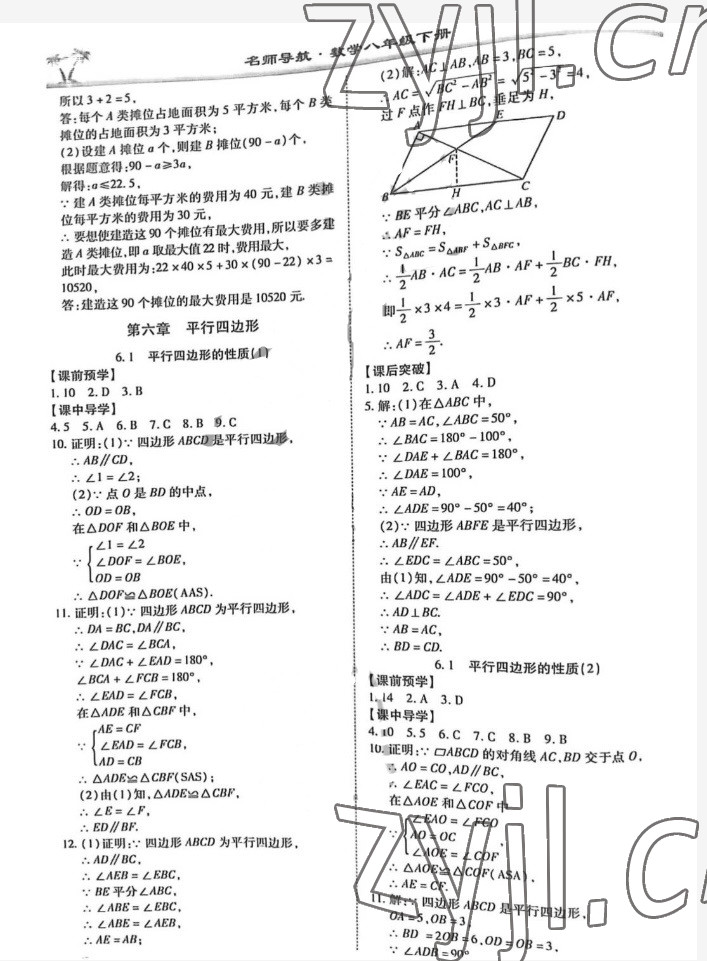 名师导航·数学八年级下册
所以3+2=5,
答:每个A类摊位占地面积为5平方米,每个B类
摊位的占地面积为3平方米;
(2)设建A摊位a个,则建B摊位(90-a)个,
根据题意得:90-a≥3a,
解得:a≤22.5,
∵建A类摊位每平方米的费用为40元,建B类摊
位每平方米的费用为30元,
∴要想使建造这90个摊位有最大费用,所以要多建
造A类摊位,即a取最大值22时,费用最大,
此时最大费用为:22×40×5+30×(90-22)×3=
10520,
答:建造这90个摊位的最大费用是10520元.
第六章 平行四边形
6.1 平行四边形的性质(1)
【课前预学】
1.10 2.D 3.B
【课中导学】
4.5 5.A 6.B 7.C 8.B 9.C
10.证明:(1)∵四边形ABCD是平行四边形,
∴AB∥CD,
∴∠1=∠2;
(2)∵点O是BD的中点,
∴OD=OB,
在△DOF和△BOE中,
∵{∠1=∠2
∠DOF=∠BOE,
OD=OB
∴△DOF≌△BOE(AAS).
11.证明:(1)∵四边形ABCD为平行四边形,
∴DA=BC,DA∥BC,
∴∠DAC=∠BCA,
∵∠DAC+∠EAD=180°,
∠BCA+∠FCB=180°,
∴∠EAD=∠FCB,
在△ADE和△CBF中,
∵{AE=CF
∠EAD=∠FCB,
AD=CB
∴△ADE≌△CBF(SAS);
(2)由(1)知,△ADE≌△CBF,
∴∠E=∠F,
∴ED∥BF.
12.(1)证明:∵四边形ABCD为平行四边形,
∴AD∥BC,
∴∠AEB=∠EBC,
∵BE平分∠ABC,
∴∠ABE=∠EBC,
∴∠ABE=∠AEB,
∴AE=AB;
(2)解:AC⊥AB,AB=3,BC=5,
∴AC=√(BC²-AB²)=√(5²-3²)=4,
过F点作FH⊥BC,垂足为H,
A E D
F
B H C
∵BE平分∠ABC,AC⊥AB,
∴AF=FH,
∵S△ABC=S△ABF+S△BFC,
∴1/2AB·AC=1/2AB·AF+1/2BC·FH,
即1/2×3×4=1/2×3·AF+1/2×5·AF,
∴AF=3/2.
【课后突破】
1.10 2.C 3.A 4.D
5.解:(1)在△ABC中,
∵AB=AC,∠ABC=50°,
∴∠BAC=180°-100°,
∵∠DAE+∠BAC=180°,
∴∠DAE=100°,
∵AE=AD,
∴∠ADE=90°-50°=40°;
(2)∵四边形ABFE是平行四边形,
∴AB∥EF.
∴∠EDC=∠ABC=50°,
由(1)知,∠ADE=90°-50°=40°,
∴∠ADC=∠ADE+∠EDC=90°,
∴AD⊥BC.
∵AB=AC,
∴BD=CD.
6.1 平行四边形的性质(2)
【课前预学】
1.14 2.A 3.D
【课中导学】
4.10 5.5 6.C 7.C 8.B 9.B
10.证明:∵▱ABCD的对角线AC,BD交于点O,
∴AO=CO,AD∥BC,
∴∠EAC=∠FCO,
在△AOE和△COF中
∵{∠EAO=∠FCO
AO=OC,
∠AOE=∠COF
∴△AOE≌△COF(ASA),
∴AE=CF.
11.解:∵四边形ABCD是平行四边形,
OA=5,OB=3,
∴BD=2OB=6,OD=OB=3,
∵∠ADB=90°
zyjl.cn
zyjl.cn